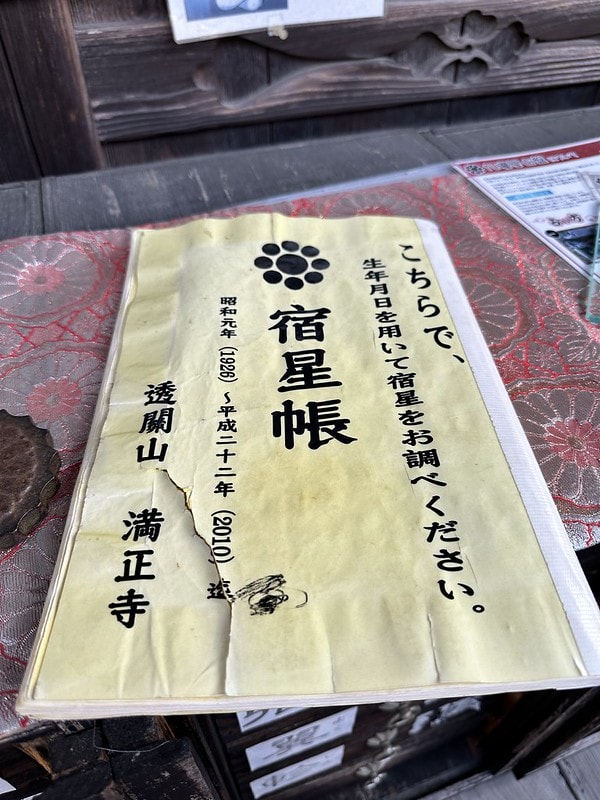 こちらで、
生年月日を用いて宿星をお調べください。
宿星帳
昭和元年（1926）～平成二十二年（2010）迄
透關山 満正寺